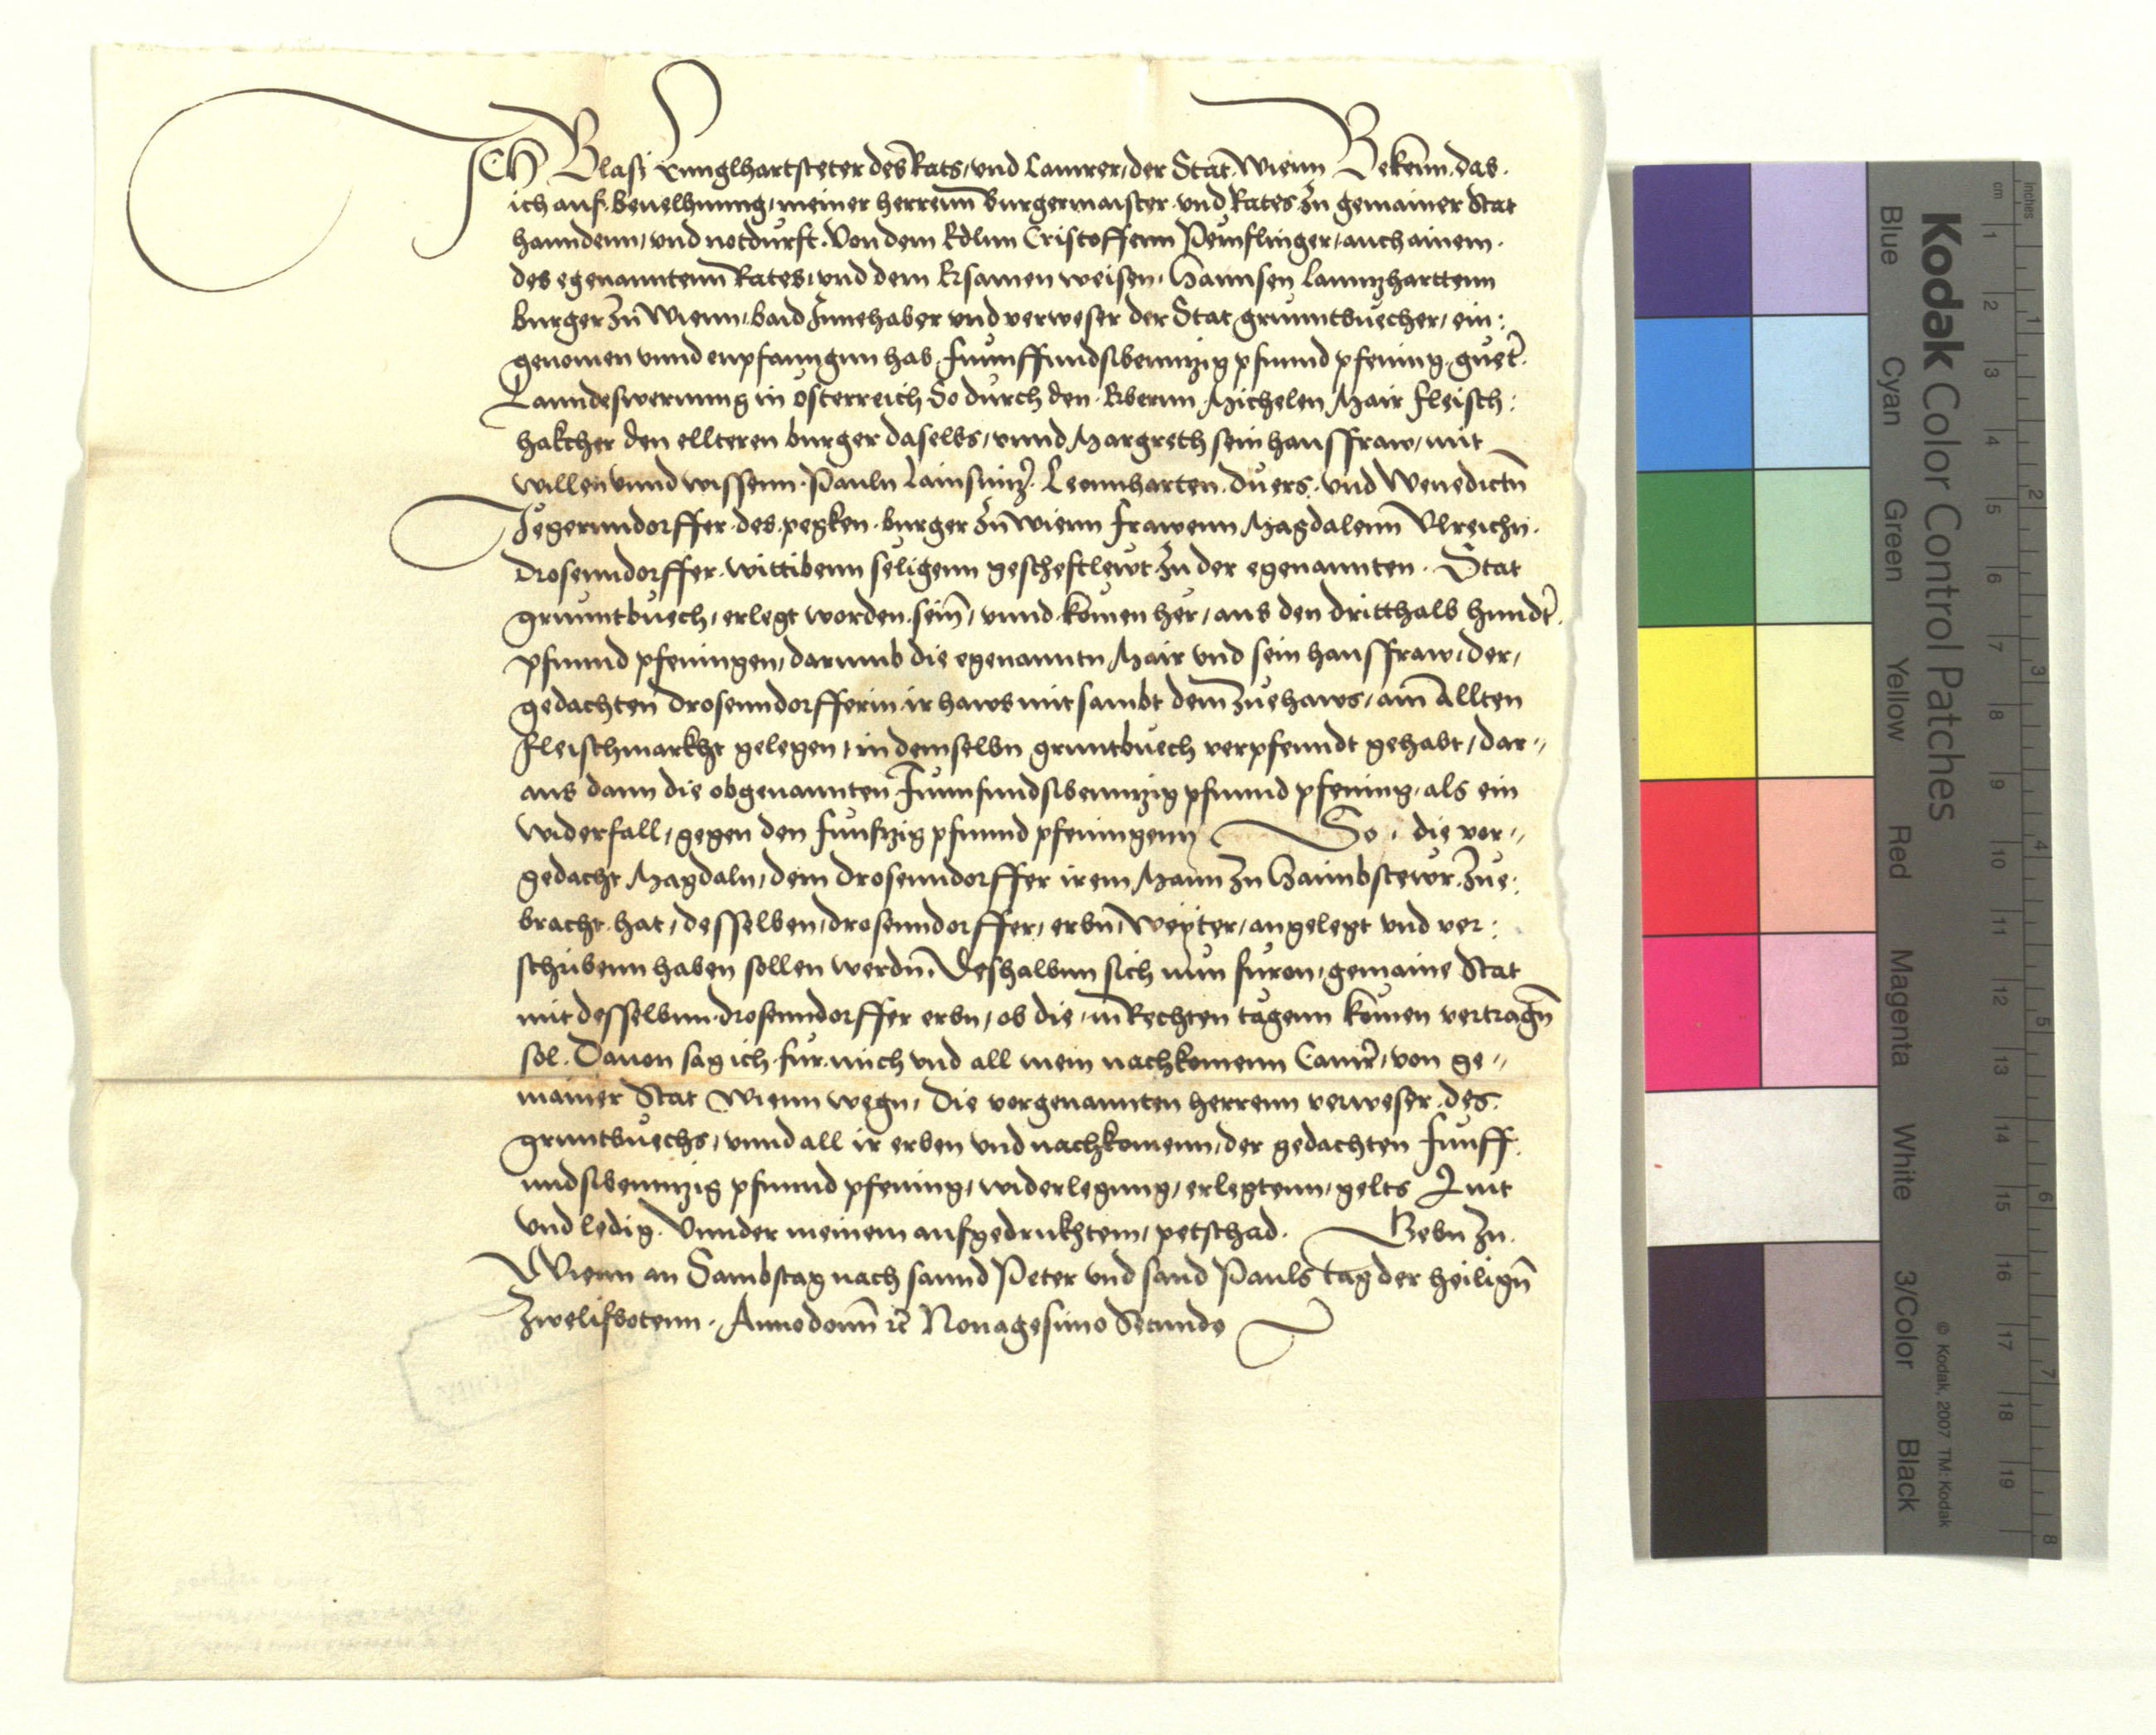 Ich Blasi Lunglhartsteter des Rats, und Camrer, der Stat Wienn Bekenn. das.
ich auf. beuelhnung, meiner herrenn Burgermaister. und Rates zu gemainer Stat
hannden, und notdurft. Von dem Edlnn Cristoffenn Pemflinger, auch ainem.
des egenanntenn Rates, und dem Ersamen weisen, Hannsen Lannzharttenn
burger zu Wienn, baid Innehaber und verweser der Stat gruntbuecher, ein:
genomen unnd enpfanngnn hab, funffundsibennzig pfunnd pfening. guet.
Lanndeswerung in Osterreich So durch den. Erbernn Michelen Mair fleisch:
hakcher den ellteren burger daselbs, unnd Margreth sein hausfraw, mit
willen unnd wissenn. Pauln Lainsnnz. Leonnharten. duers. und Wenedictn
Jegerndorffer. des. pegken. burger zu Wienn frawenn Magdalenn Ulreichn.
drosenndorffer. wittibenn seligenn gescheftlewt zu der egenannten. Stat
gruntbuech, erlegt worden. sein, unnd. komen her, aus den dritthalb hundt.
pfunnd pfeningen, darumb die egenanntn Mair und sein hausfraw, der,
gedachten drosenndorfferin ir haws mit sambt dem zuehaws, am Allten
fleischmarkht gelegen, in demselbn gruntbuech verpfenndt gehabt, dar„
aus dann die obgenannten Funfundsibennzig pfunnd pfening, als ein
widerfall, gegen den funfzig pfunnd pfeningenn So. die vor„
gedacht Magdaln, dem drosenndorffer irem Mann zu Haimbstewr. zue:
bracht. hat, desselben, drosenndorffer, erbn, weyter, angelegt und ver:
schribenn haben sollen werdn. Deshalbnn sich nun furon, gemaine Stat
mit desselbnn. drosenndorffer erbn, ob die, in Rechten tagenn komen vertragn
sol. Dauon sag ich. fur. mich und all mein nachkomenn Camr, von ge„
mainer Stat Wienn wegn, die vorgenannten herrenn verweser. des.
gruntbuechs, unnd all ir erben und nachkomenn, der gedachten funff.
undsibennzig pfunnd pfening, widerlegung, erlegtenn, gelts Quit
und ledig. Unnder meinem aufgedrukhtem, petschad. Gebn zu.
Wienn an Sambstag nach sannd Peter und sand Pauls tag der heilign
zwelifbotenn. Anno domn etc Nonagesimo Secundo
Kodak Color Control Patches
Blue Cyan Green Yellow Red Magenta White 3/Color Black
© Kodak, 2007 TM: Kodak
cm 1 2 3 4 5 6 7 8 9 10 11 12 13 14 15 16 17 18 19
inches 1 2 3 4 5 6 7 8